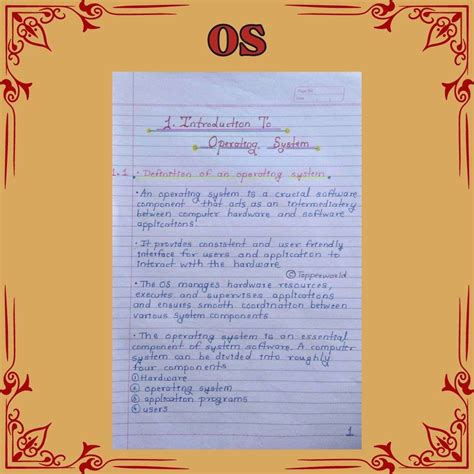 OS
Page No.
Date
1. Introduction To
Operating System
1.1 • Definition of an operating system.
• An operating system is a crucial software
component that acts as an intermediatery
between computer hardware and software
applications.
• It provides consistent and user friendly
interface for users and application to
interact with the hardware
© Topperworld
• The OS manages hardware resources,
executes and supervises applications
and ensures smooth coordination between
various system components
• The operating system is an essential
component of system software. A computer
system can be divided into roughly
four components
① Hardware
② operating system
③ application programs
④ users
1